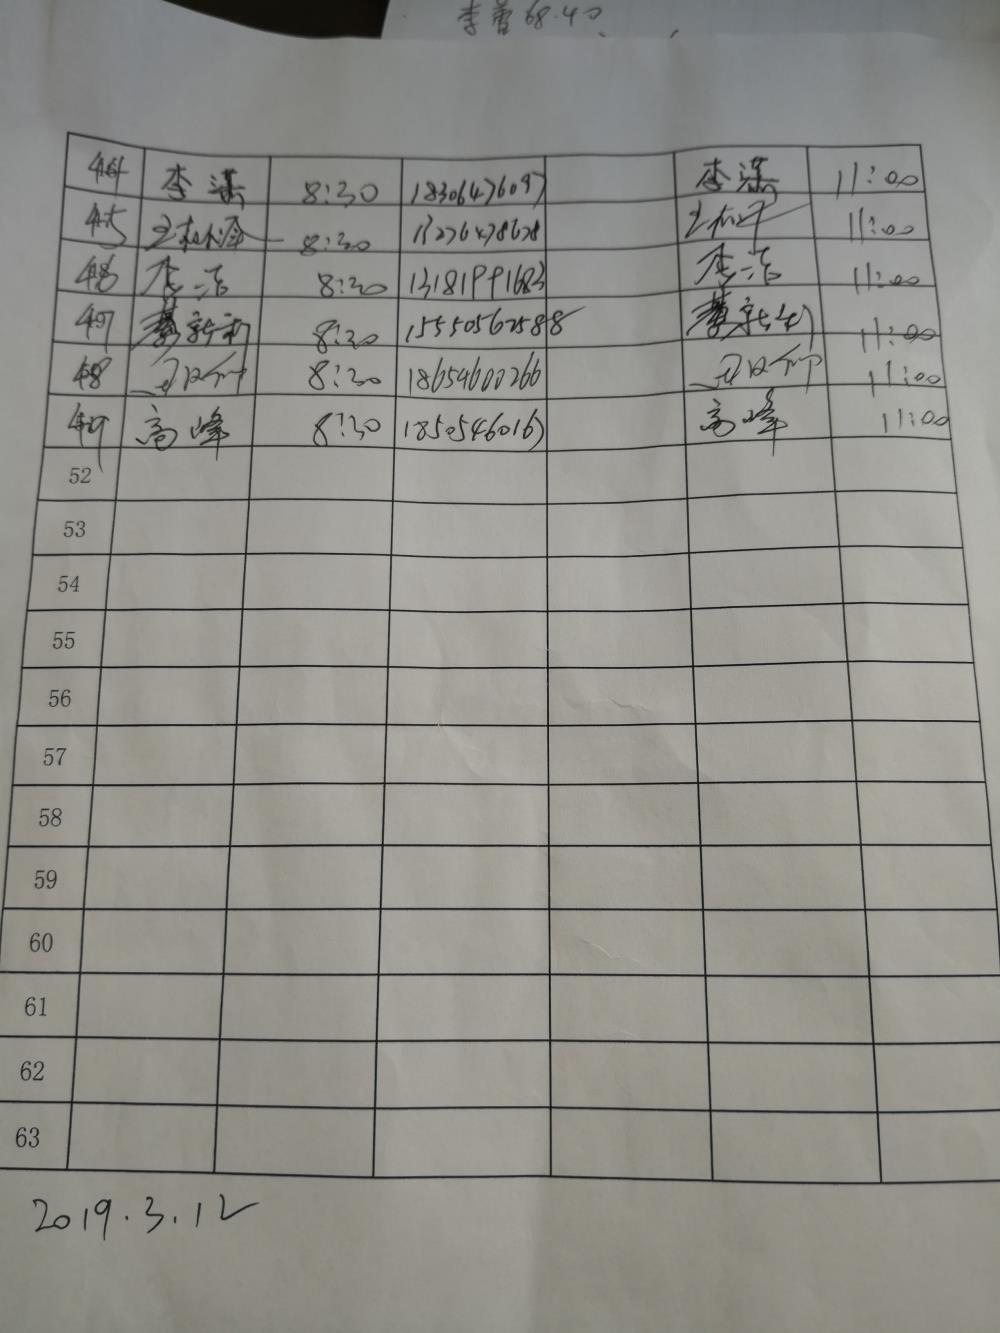 李 68.40
44 李潇 8:30 18306476097 李潇 11:00
45 8:30 11:00
46 李浩 8:30 13181991683 李浩 11:00
47 8:30 15550562588 11:00
48 8:30 18654600266 11:00
49 高峰 8:30 18505460167 高峰 11:00
52
53
54
55
56
57
58
59
60
61
62
63
2019.3.12